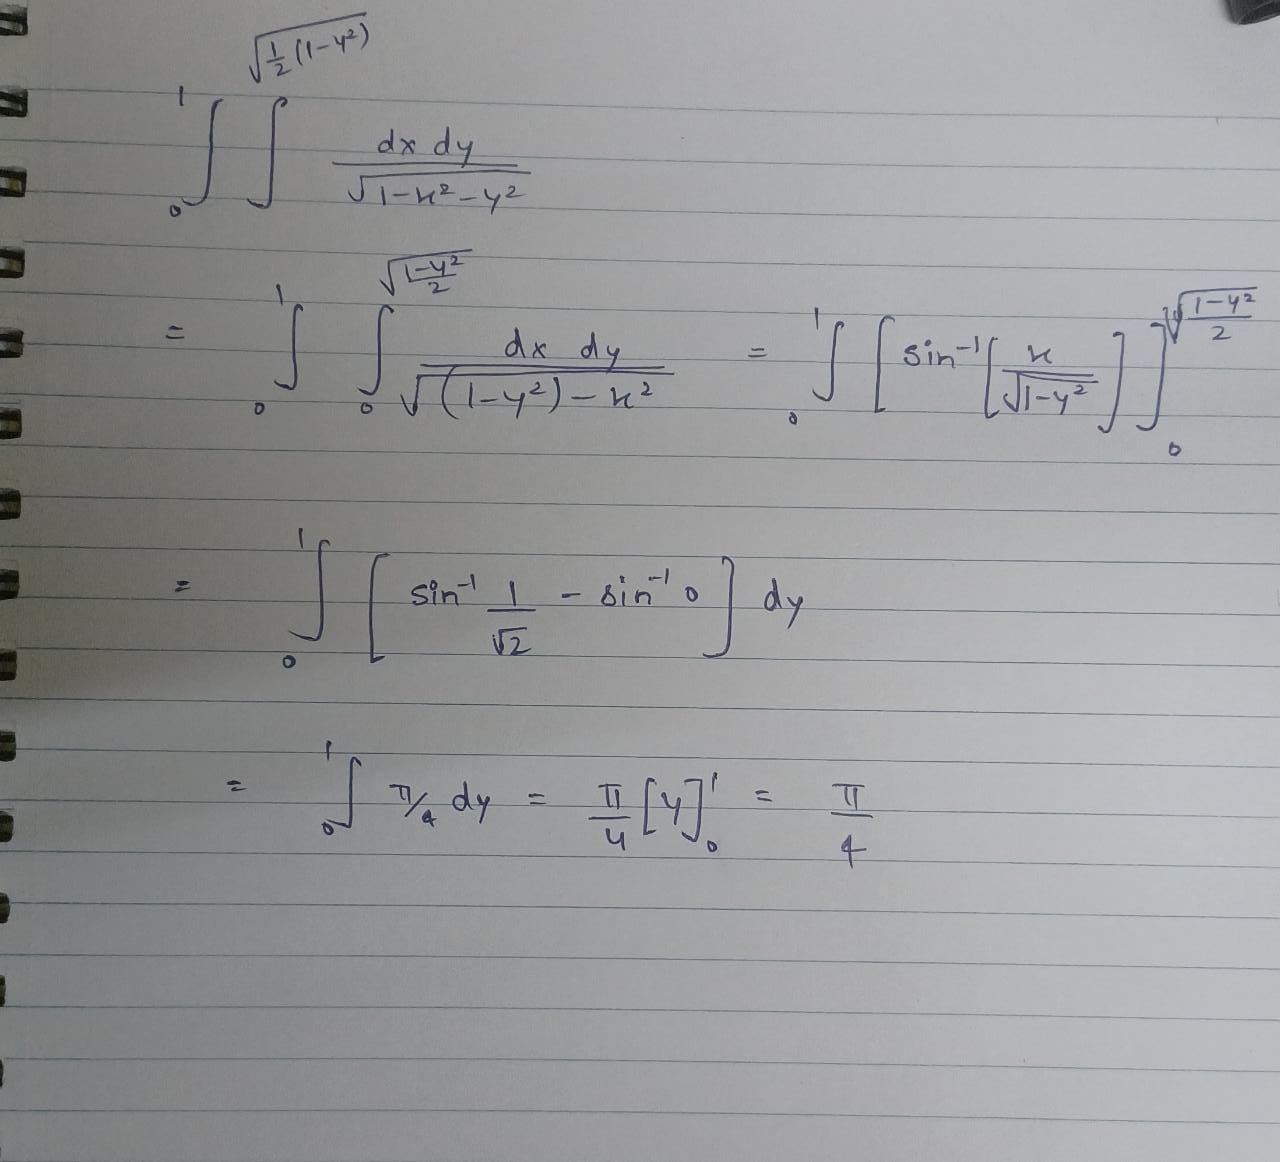 ∫₀¹ ∫^√(½(1-y²)) dx dy / √(1-x²-y²)
= ∫₀¹ ∫₀^√((1-y²)/2) dx dy / √((1-y²)-x²) = ∫₀¹ [sin⁻¹[x/√(1-y²)]]₀^√((1-y²)/2)
= ∫₀¹ [sin⁻¹ 1/√2 - sin⁻¹ 0] dy
= ∫₀¹ π/4 dy = π/4 [y]₀¹ = π/4